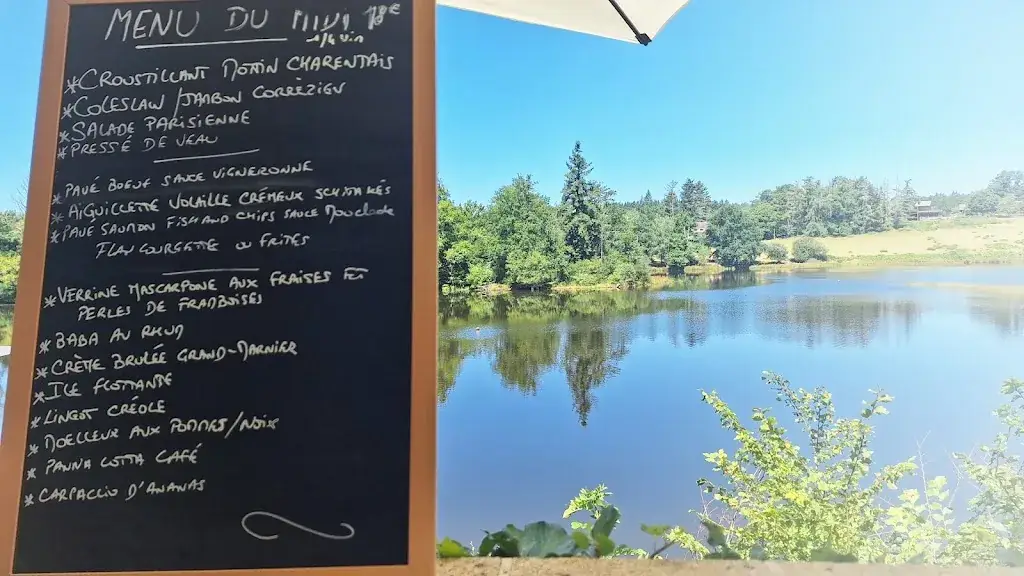 MENU DU MIDI 18€
1/4 vin
*CROUSTILLANT MOTHIN CHARENTAIS
*COLESLAW/JAMBON CORRÈZIEN
*SALADE PARISIENNE
*PRESSÉ DE VEAU
*PAVÉ BOEUF SAUCE VIGNERONNE
*AIGUILLETTE VOLAILLE CRÉMEUX SCHITAKÉS
*PAVÉ SAUMON FISH AND CHIPS SAUCE Mouclade
FLAN COURGETTE OU FRITES
*VERRINE MASCARPONE AUX FRAISES ET
PERLES DE FRAMBOISES
*BABA AU RHUM
*CRÈME BRULÉE GRAND-MARNIER
*ILE FLOTTANTE
*LINGOT CRÉOLE
*MOELLEUX AUX POMMES/NOIX
*PANNA COTTA CAFÉ
*CARPACCIO D'ANANAS